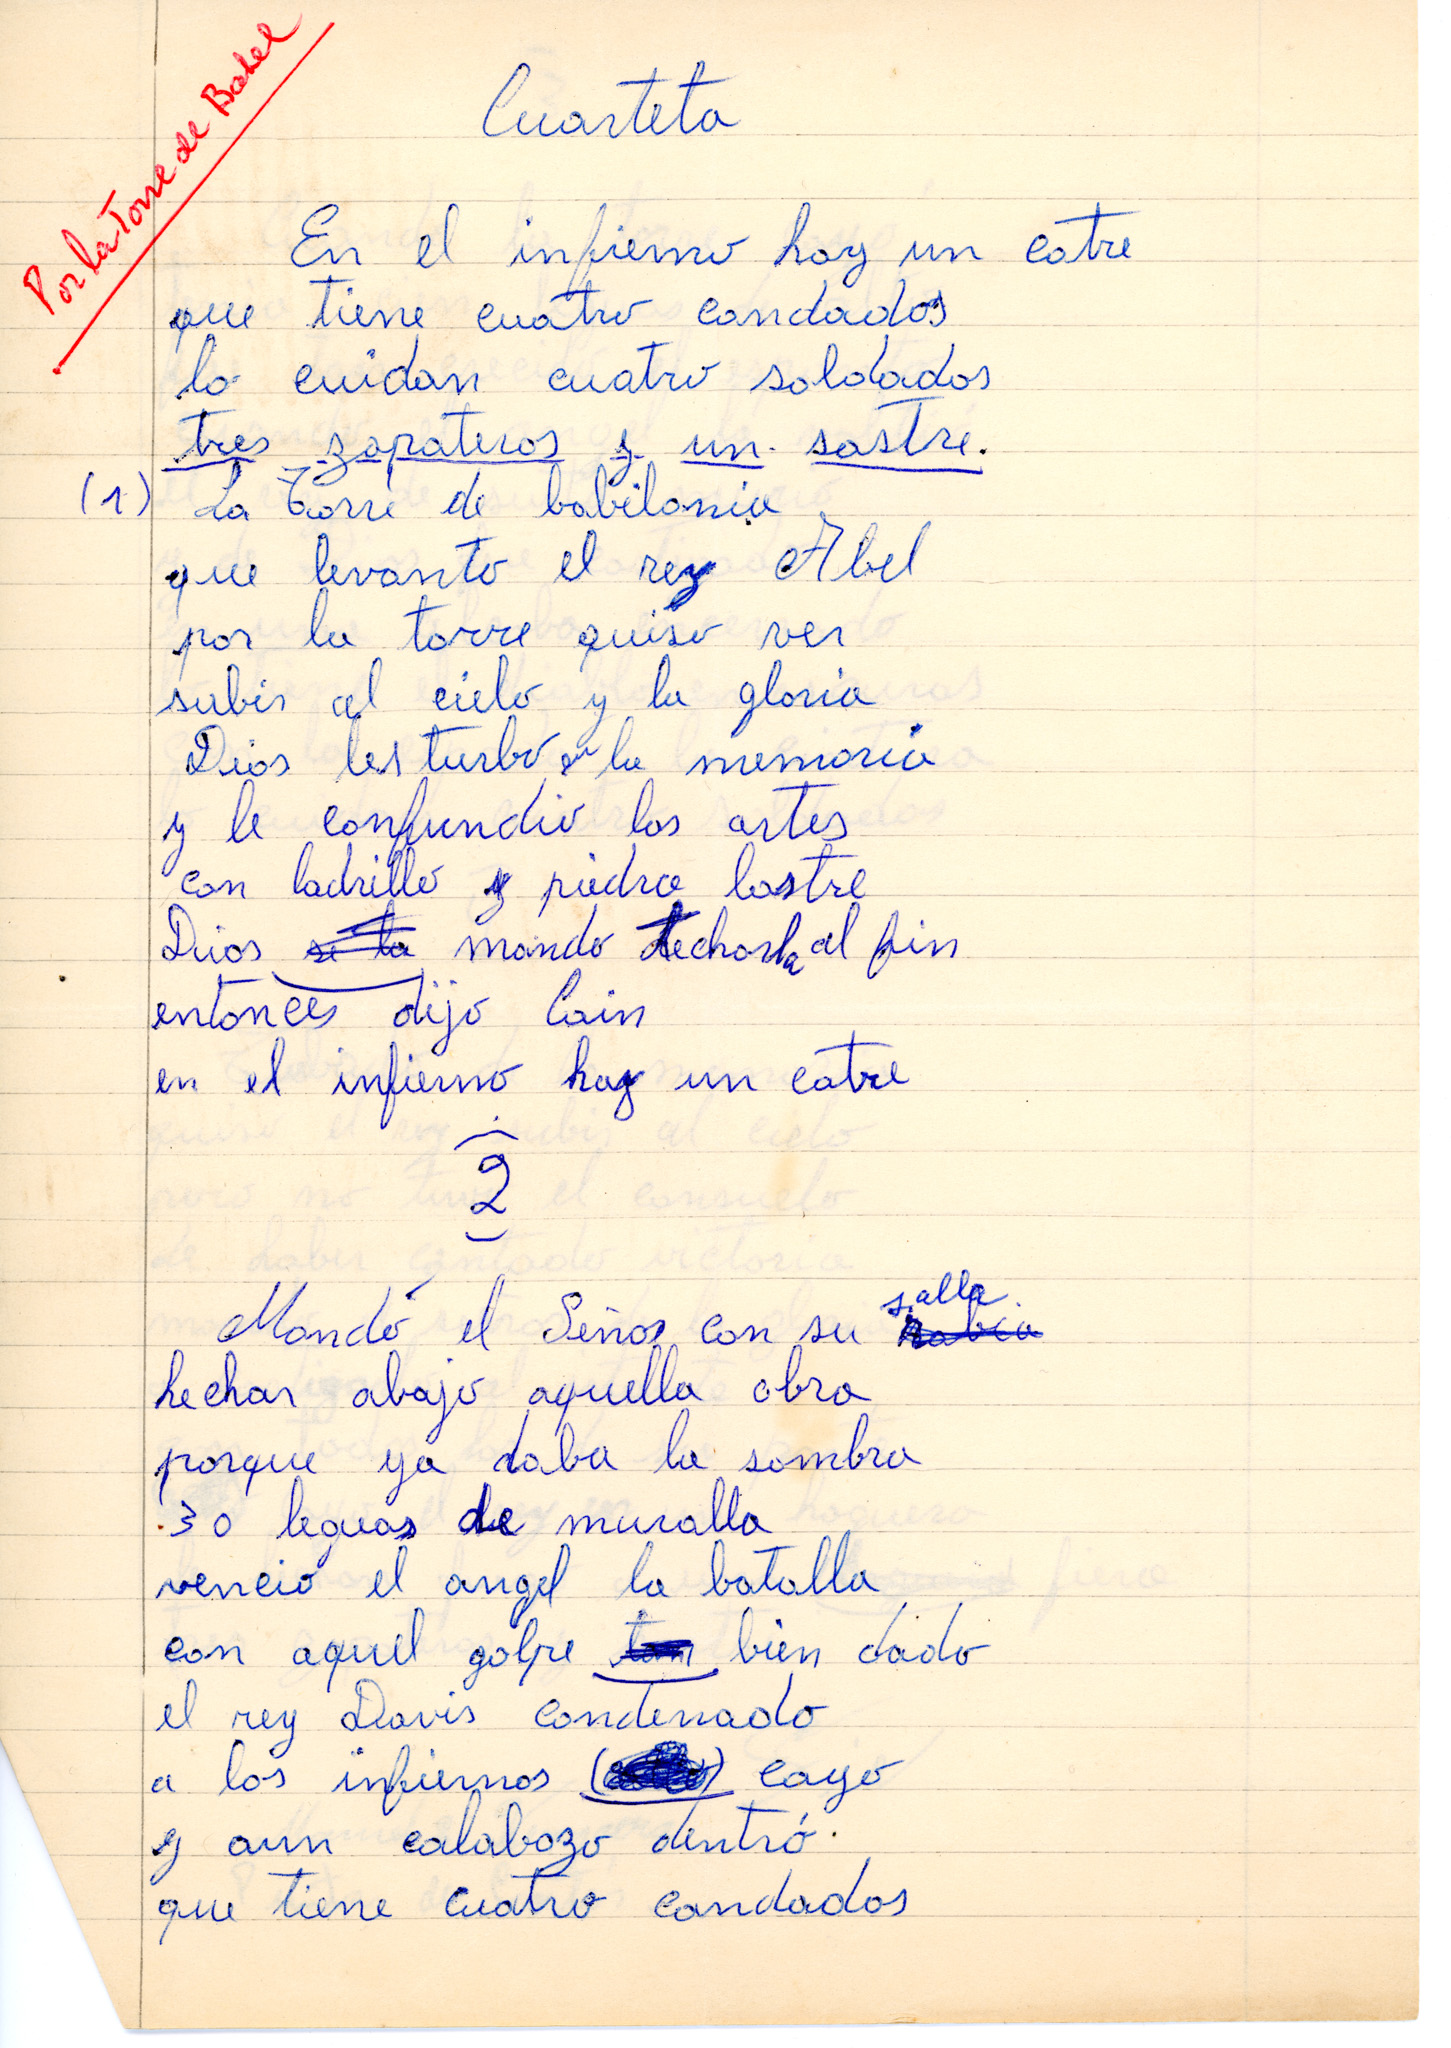 Por la Torre de Babel
Cuarteta
En el infierno hay un catre
que tiene cuatro candados
lo cuidan cuatro soldados
tres zapateros y un sastre.
(1) La Torre de babilonia
que levanto el rey Abel
por la torre quiso ver
subir al cielo y la gloria
Dios les turbó la memoria
y le confundio los artes
con ladrillo y piedra lastre
Dios se la mando hecharla al fin
entonces dijo Cain
en el infierno hay un catre
2
salla
Mandó el Señor con su rabia
hechar abajo aquella obra
porque ya daba la sombra
30 leguas de muralla
venció el angel la batalla
con aquel golpe tan bien dado
el rey Davis condenado
a los infiernos cayo
y aun calabozo dentró.
que tiene cuatro candados